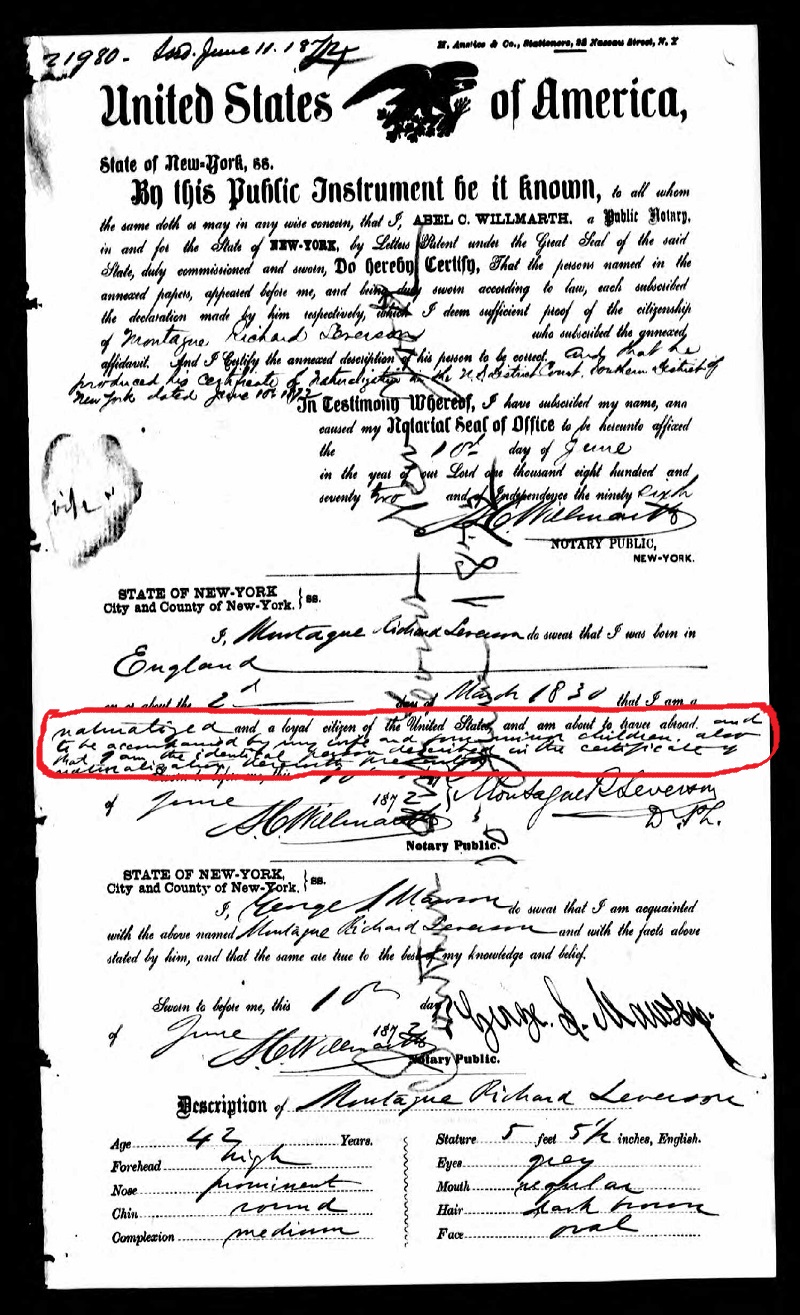 21980 - Issd. June 11. 1872
M. Anstice & Co., Stationers, 25 Nassau Street, N. Y
United States of America,
State of New-York, ss.
By this Public Instrument be it known, to all whom
the same doth or may in any wise concern, that I, ABEL C. WILLMARTH, a Public Notary,
in and for the State of NEW-YORK, by Letters Patent under the Great Seal of the said
State, duly commissioned and sworn, Do hereby Certify, That the persons named in the
annexed papers, appeared before me, and being duly sworn according to law, each subscribed
the declaration made by him respectively, which I deem sufficient proof of the citizenship
of Montague Richard Leverson who subscribed the annexed
affidavit. And I Certify the annexed description of his person to be correct. and that he
produced his Certificate of Naturalization in the U.S. District Court, Southern District of
New York dated June 10th 1872
In Testimony Whereof, I have subscribed my name, and
caused my Notarial Seal of Office to be hereunto affixed
the 10th day of June
in the year of our Lord one thousand eight hundred and
seventy two and of Independence the ninety sixth
A.C. Willmarth
NOTARY PUBLIC,
NEW-YORK.
STATE OF NEW-YORK
City and County of New-York. } ss.
I, Montague Richard Leverson do swear that I was born in
England
on or about the 2d day of March 1830 that I am a
naturalized and a loyal citizen of the United States, and am about to travel abroad. and
to be accompanied by my wife and four minor children. also
that I am the identical person described in the certificate of
naturalization herewith presented
Sworn to before me, this 10
of June 1872 } Montague R. Leverson
A.C. Willmarth
Notary Public.
STATE OF NEW-YORK,
City and County of New-York. } ss.
I, George S Mawson do swear that I am acquainted
with the above named Montague Richard Leverson and with the facts above
stated by him, and that the same are true to the best of my knowledge and belief.
Sworn to before me, this 10th day
of June 1872 } George. S. Mawson.
A.C. Willmarth
Notary Public.
Description of Montague Richard Leverson
Age 42 Years. Stature 5 feet 5 1/2 inches, English.
Forehead high Eyes grey
Nose prominent Mouth regular
Chin round Hair dark brown
Complexion medium Face oval